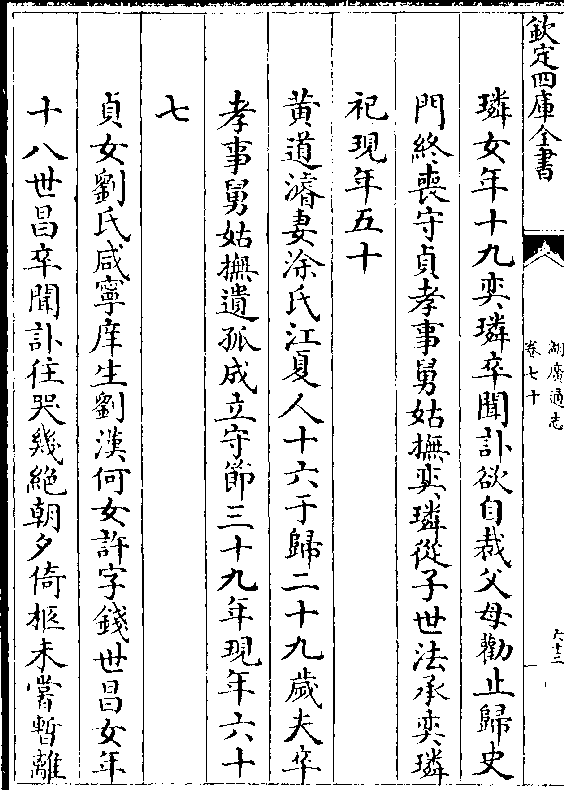 欽定四庫全書
湖廣通志
卷七十
六十三
璘女年十九奕璘卒聞訃欲自裁父母勸止歸史
門終喪守貞孝事舅姑撫奕璘從子世法承奕璘
祀現年五十
黄道濬妻涂氏江夏人十六于歸二十九歲夫卒
孝事舅姑撫遺孤成立守節三十九年現年六十
七
貞女劉氏咸寧庠生劉漢何女許字錢世昌女年
十八世昌卒聞訃往哭幾絶朝夕倚柩未嘗暫離